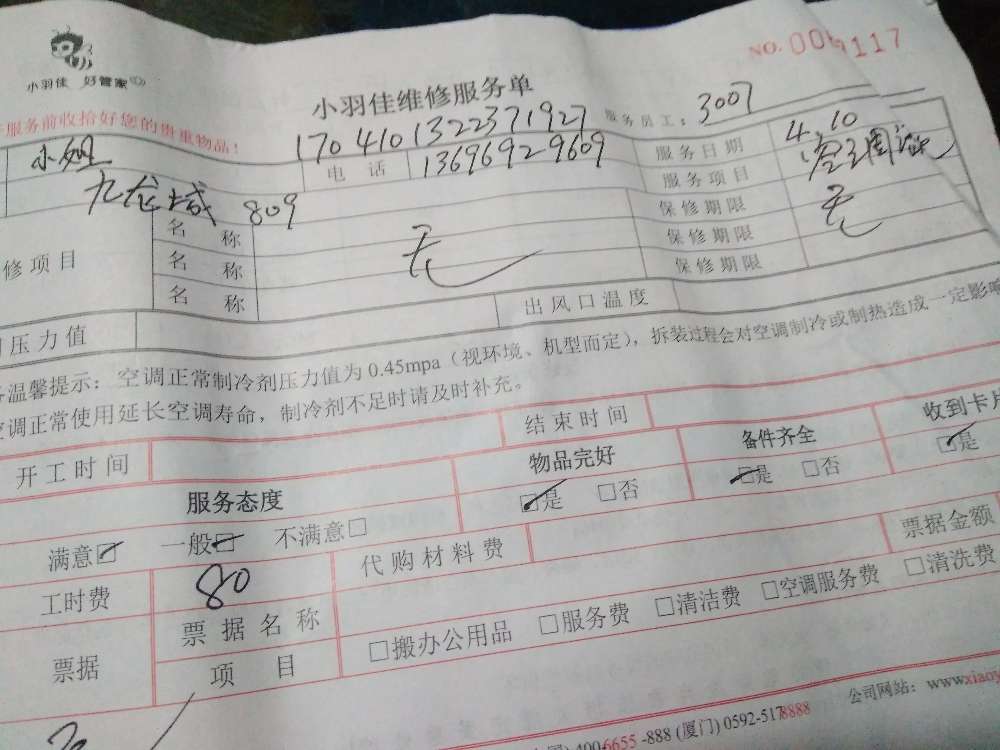 小羽佳 好管家
小羽佳维修服务单
NO.
服务前收拾好您的贵重物品!
服务员工: 3007
小姐
170 410 1322371927
电话 13696929609
服务日期 4.10
九龙城 809
服务项目
名称 无 保修期限 无
修项目 名称 保修期限
名称 保修期限
压力值 出风口温度
温馨提示: 空调正常制冷剂压力值为0.45mpa(视环境、机型而定), 拆装过程会对空调制冷或制热造成一定影响
调正常使用延长空调寿命, 制冷剂不足时请及时补充。
开工时间 结束时间
服务态度 物品完好 备件齐全 收到卡片
满意☑ 一般☑ 不满意□ ☑是 □否 ☑是 □否 ☑是
工时费 80 代购材料费 票据金额
票据 票据名称 □搬办公用品 □服务费 □清洁费 □空调服务费 □清洗费
项目
公司网站: www.xiaoy
400-6655-888 (厦门) 0592-5178888